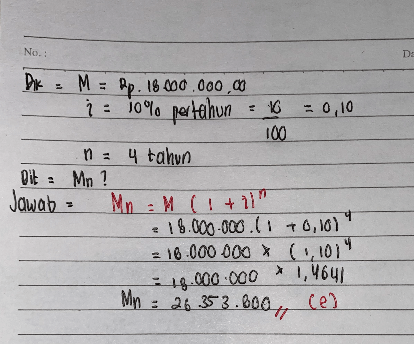 No. :
Da
Dik = M = Rp. 18.000.000,00
i = 10% pertahun = 10/100 = 0,10
n = 4 tahun
Dit = Mn ?
Jawab = Mn = M (1 + i)ⁿ
= 18.000.000.(1 + 0,10)⁴
= 18.000.000 × (1,10)⁴
= 18.000.000 × 1,4641
Mn = 26.353.800,, (e)